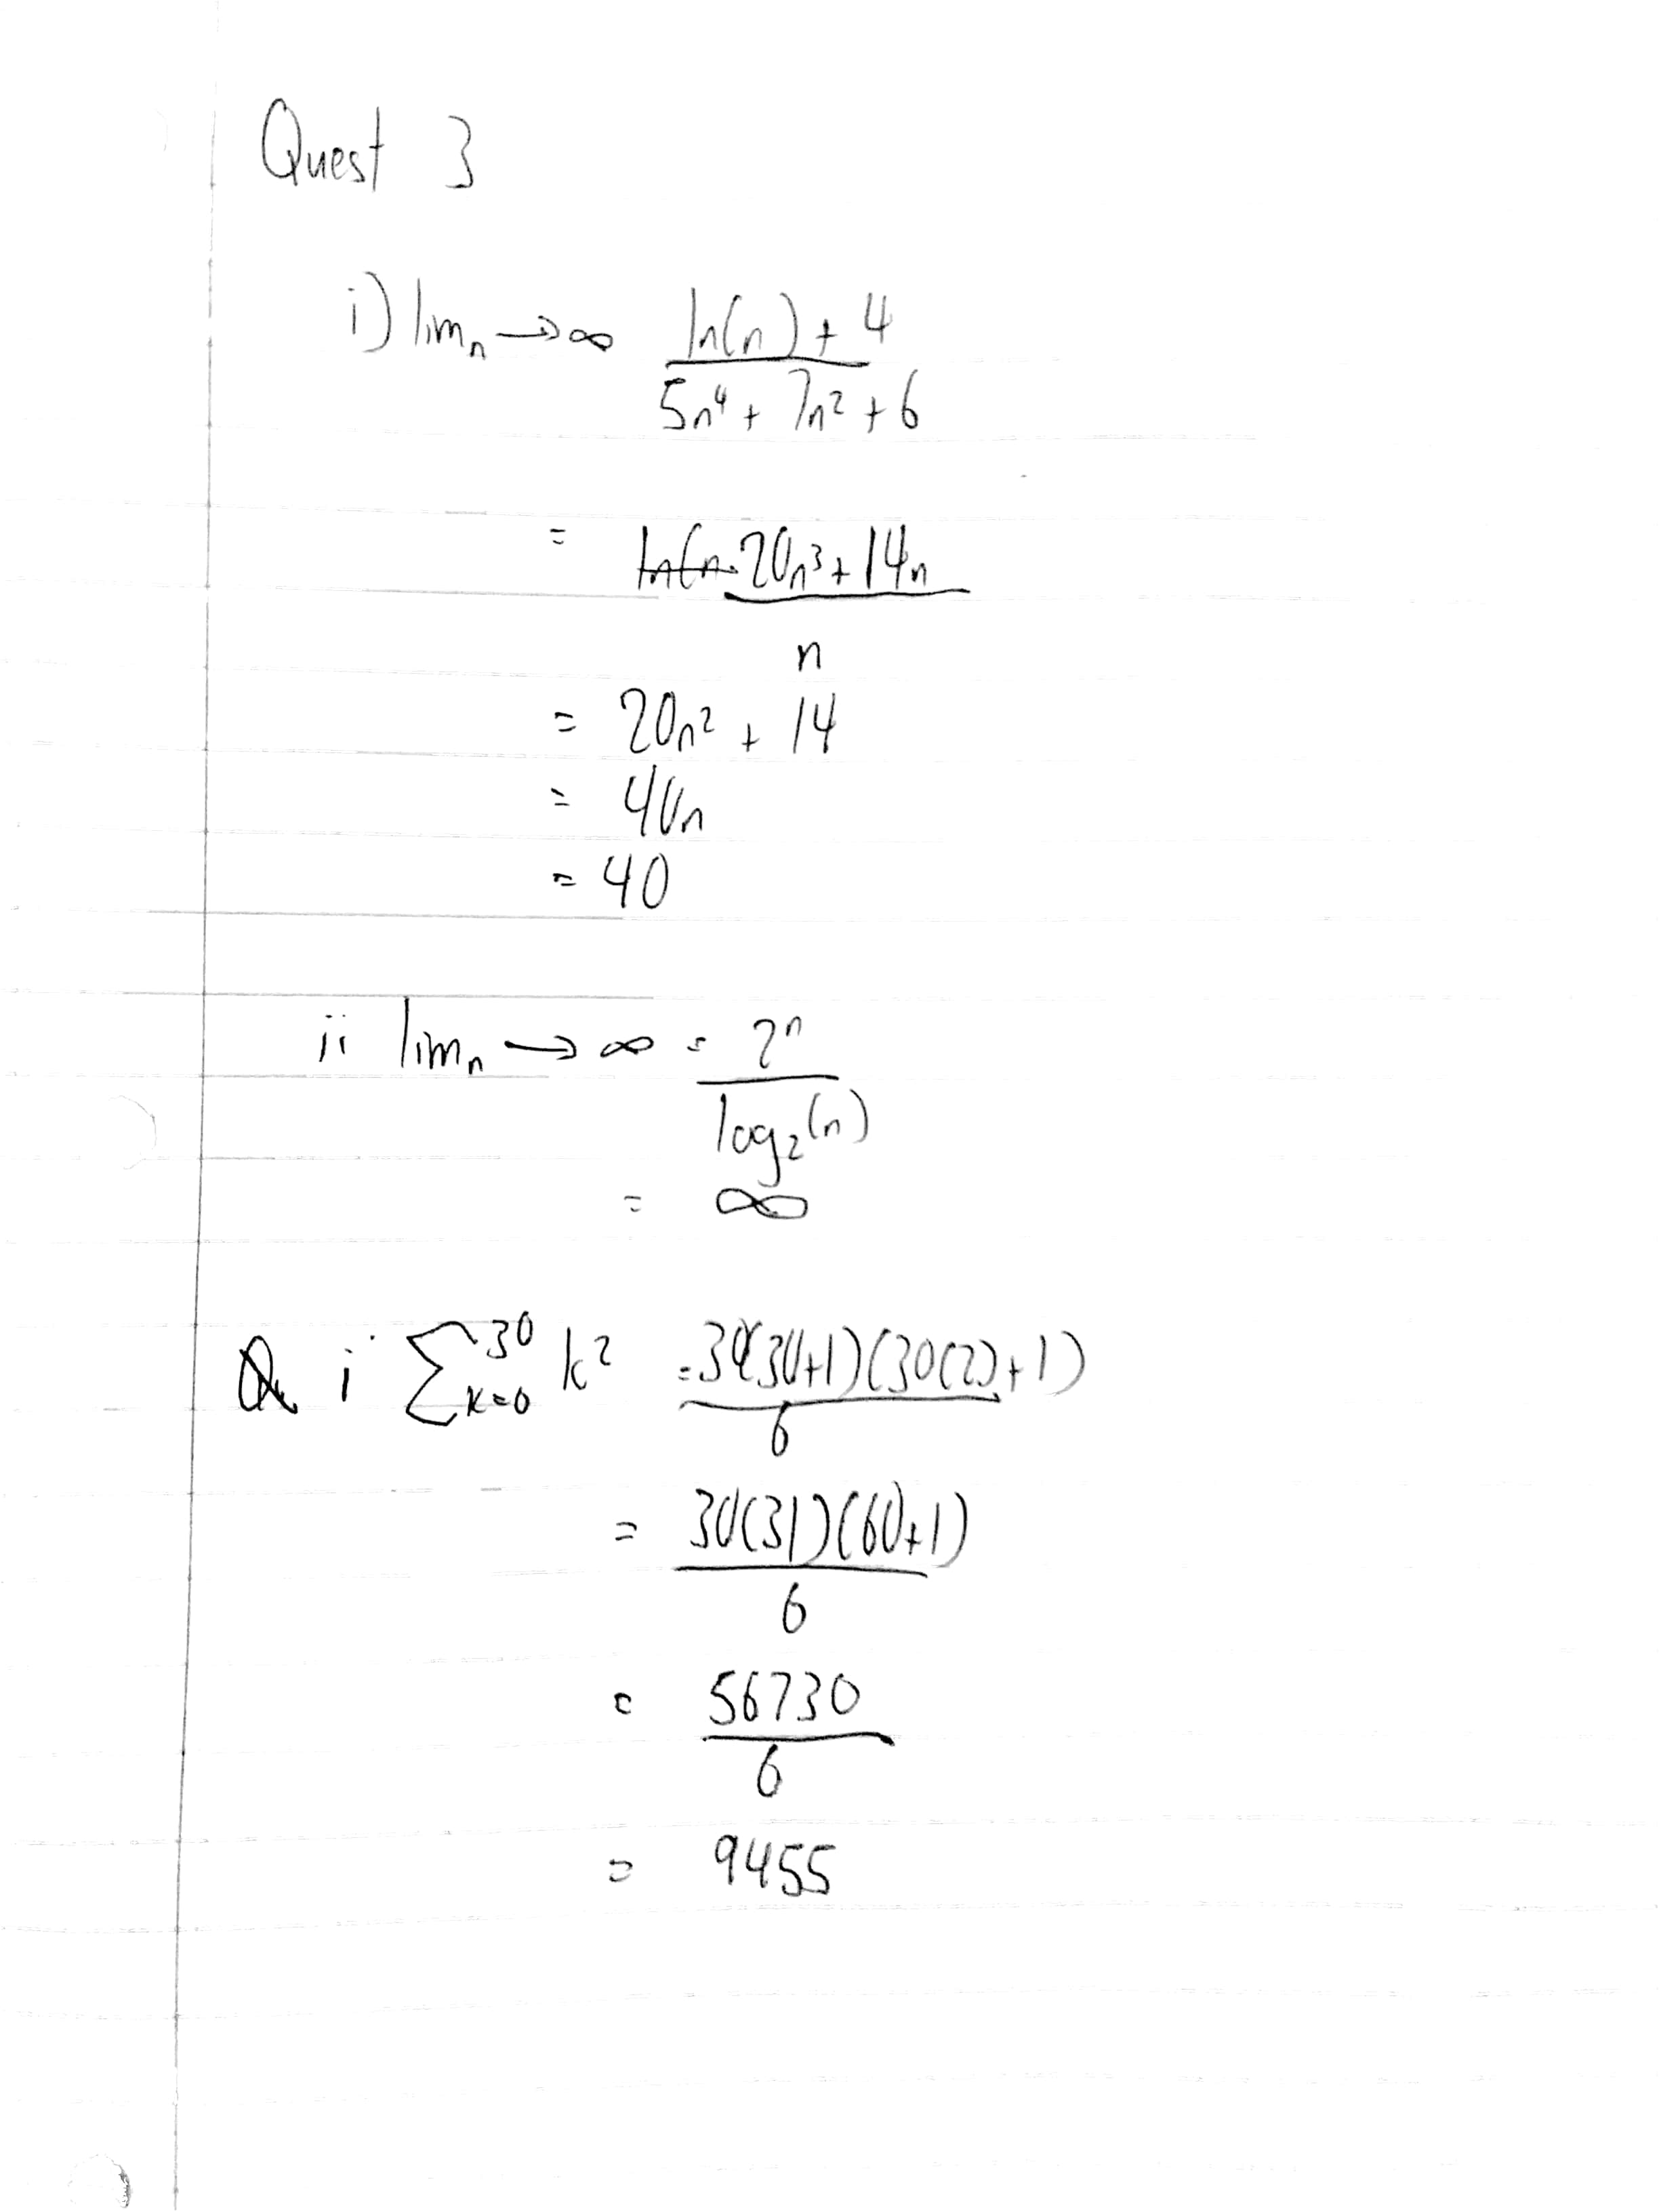 Quest 3
i) lim n → ∞ ln(n) + 4
5n⁴ + 7n² + 6
= 20n³ + 14n
n
= 20n² + 14
= 40n
= 40
ii lim n → ∞ = 2ⁿ
log₂(n)
= ∞
i ∑ 30 k=0 k² = 30(30+1)(30(2)+1)
6
= 30(31)(60+1)
6
= 56730
6
= 9455